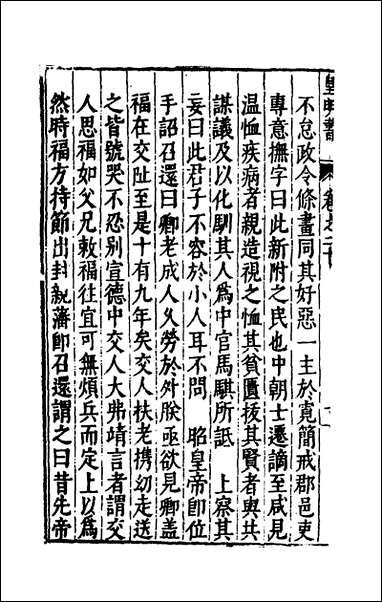 皇明書
卷之二十
不怠政令條畫同其好惡一主於寬簡戒郡邑吏
專意撫字曰此新附之民也中朝士遷謫至咸見
温恤疾病者親造視之恤其貧匱拔其賢者與共
謀議及以化馴其人為中官馬騏所詆　上察其
妄曰此君子不容於小人耳不問　昭皇帝即位
手詔召還曰卿老成人久勞於外朕亟欲見卿蓋
福在交阯至是十有九年矣交人扶老携幼走送
之皆號哭不忍别宣德中交人大弗靖言者謂交
人思福如父兄敕福往宜可無煩兵而定上以為
然時福方持節出封親藩即召還謂之曰昔先帝